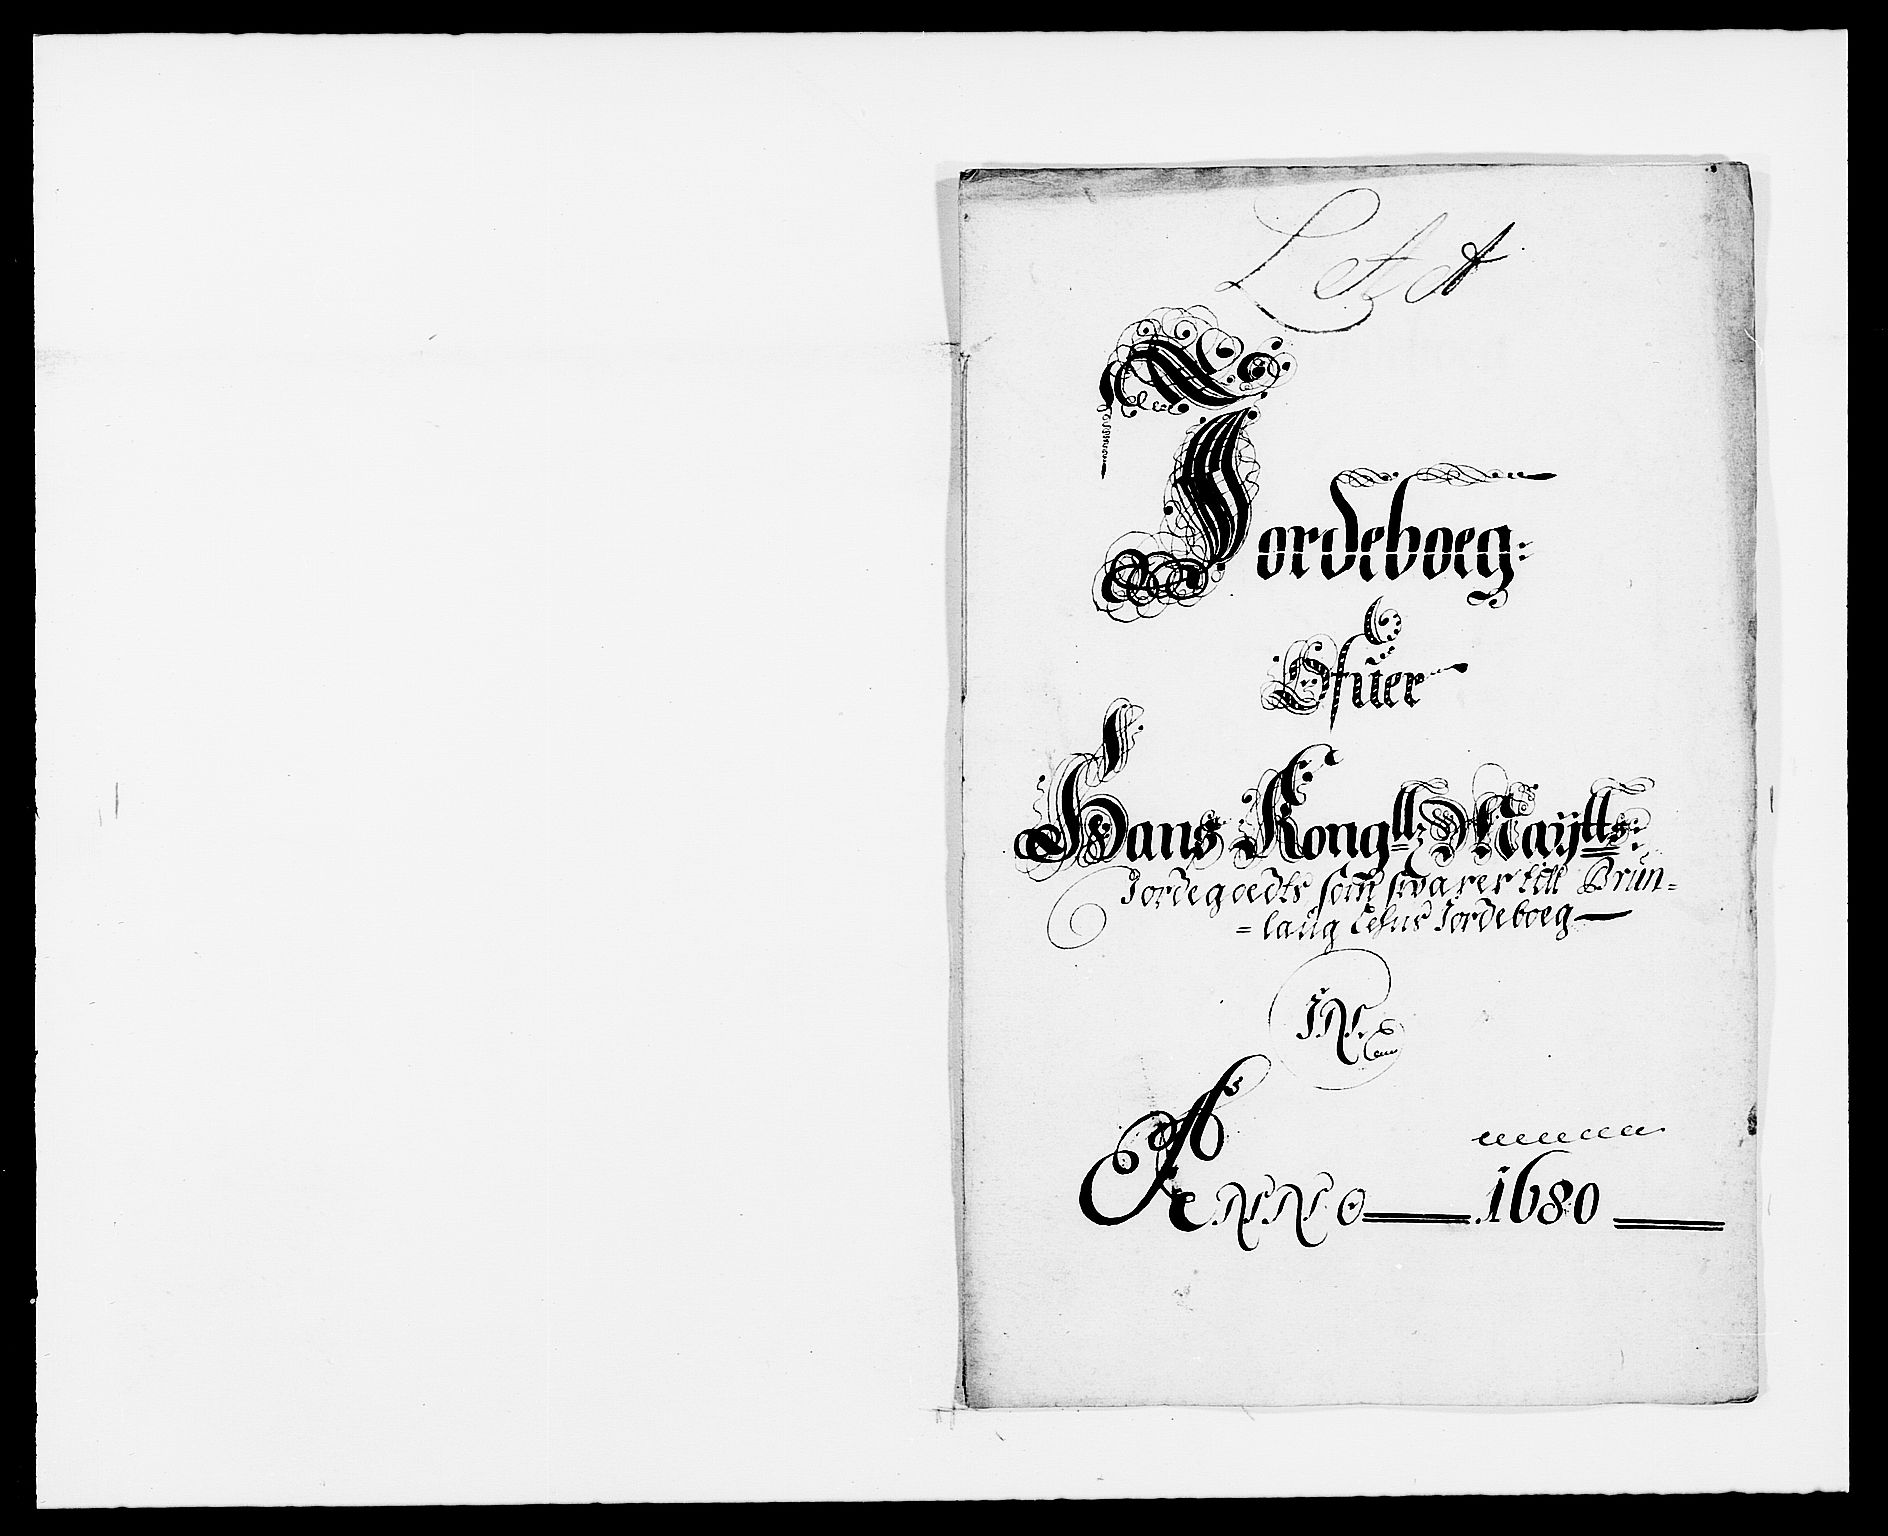 Lit A
Jordeboeg:
Ofuer
Hans Kongll: Maÿtts:
Jordegoedts som svarer till Brun=
=laug Lehns Jordeboeg
Anno 1680